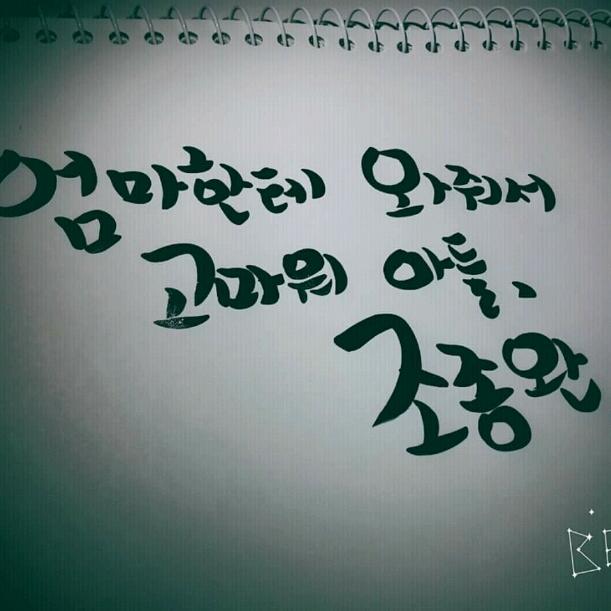 엄마한테 와줘서
고마워 아들,
조종완